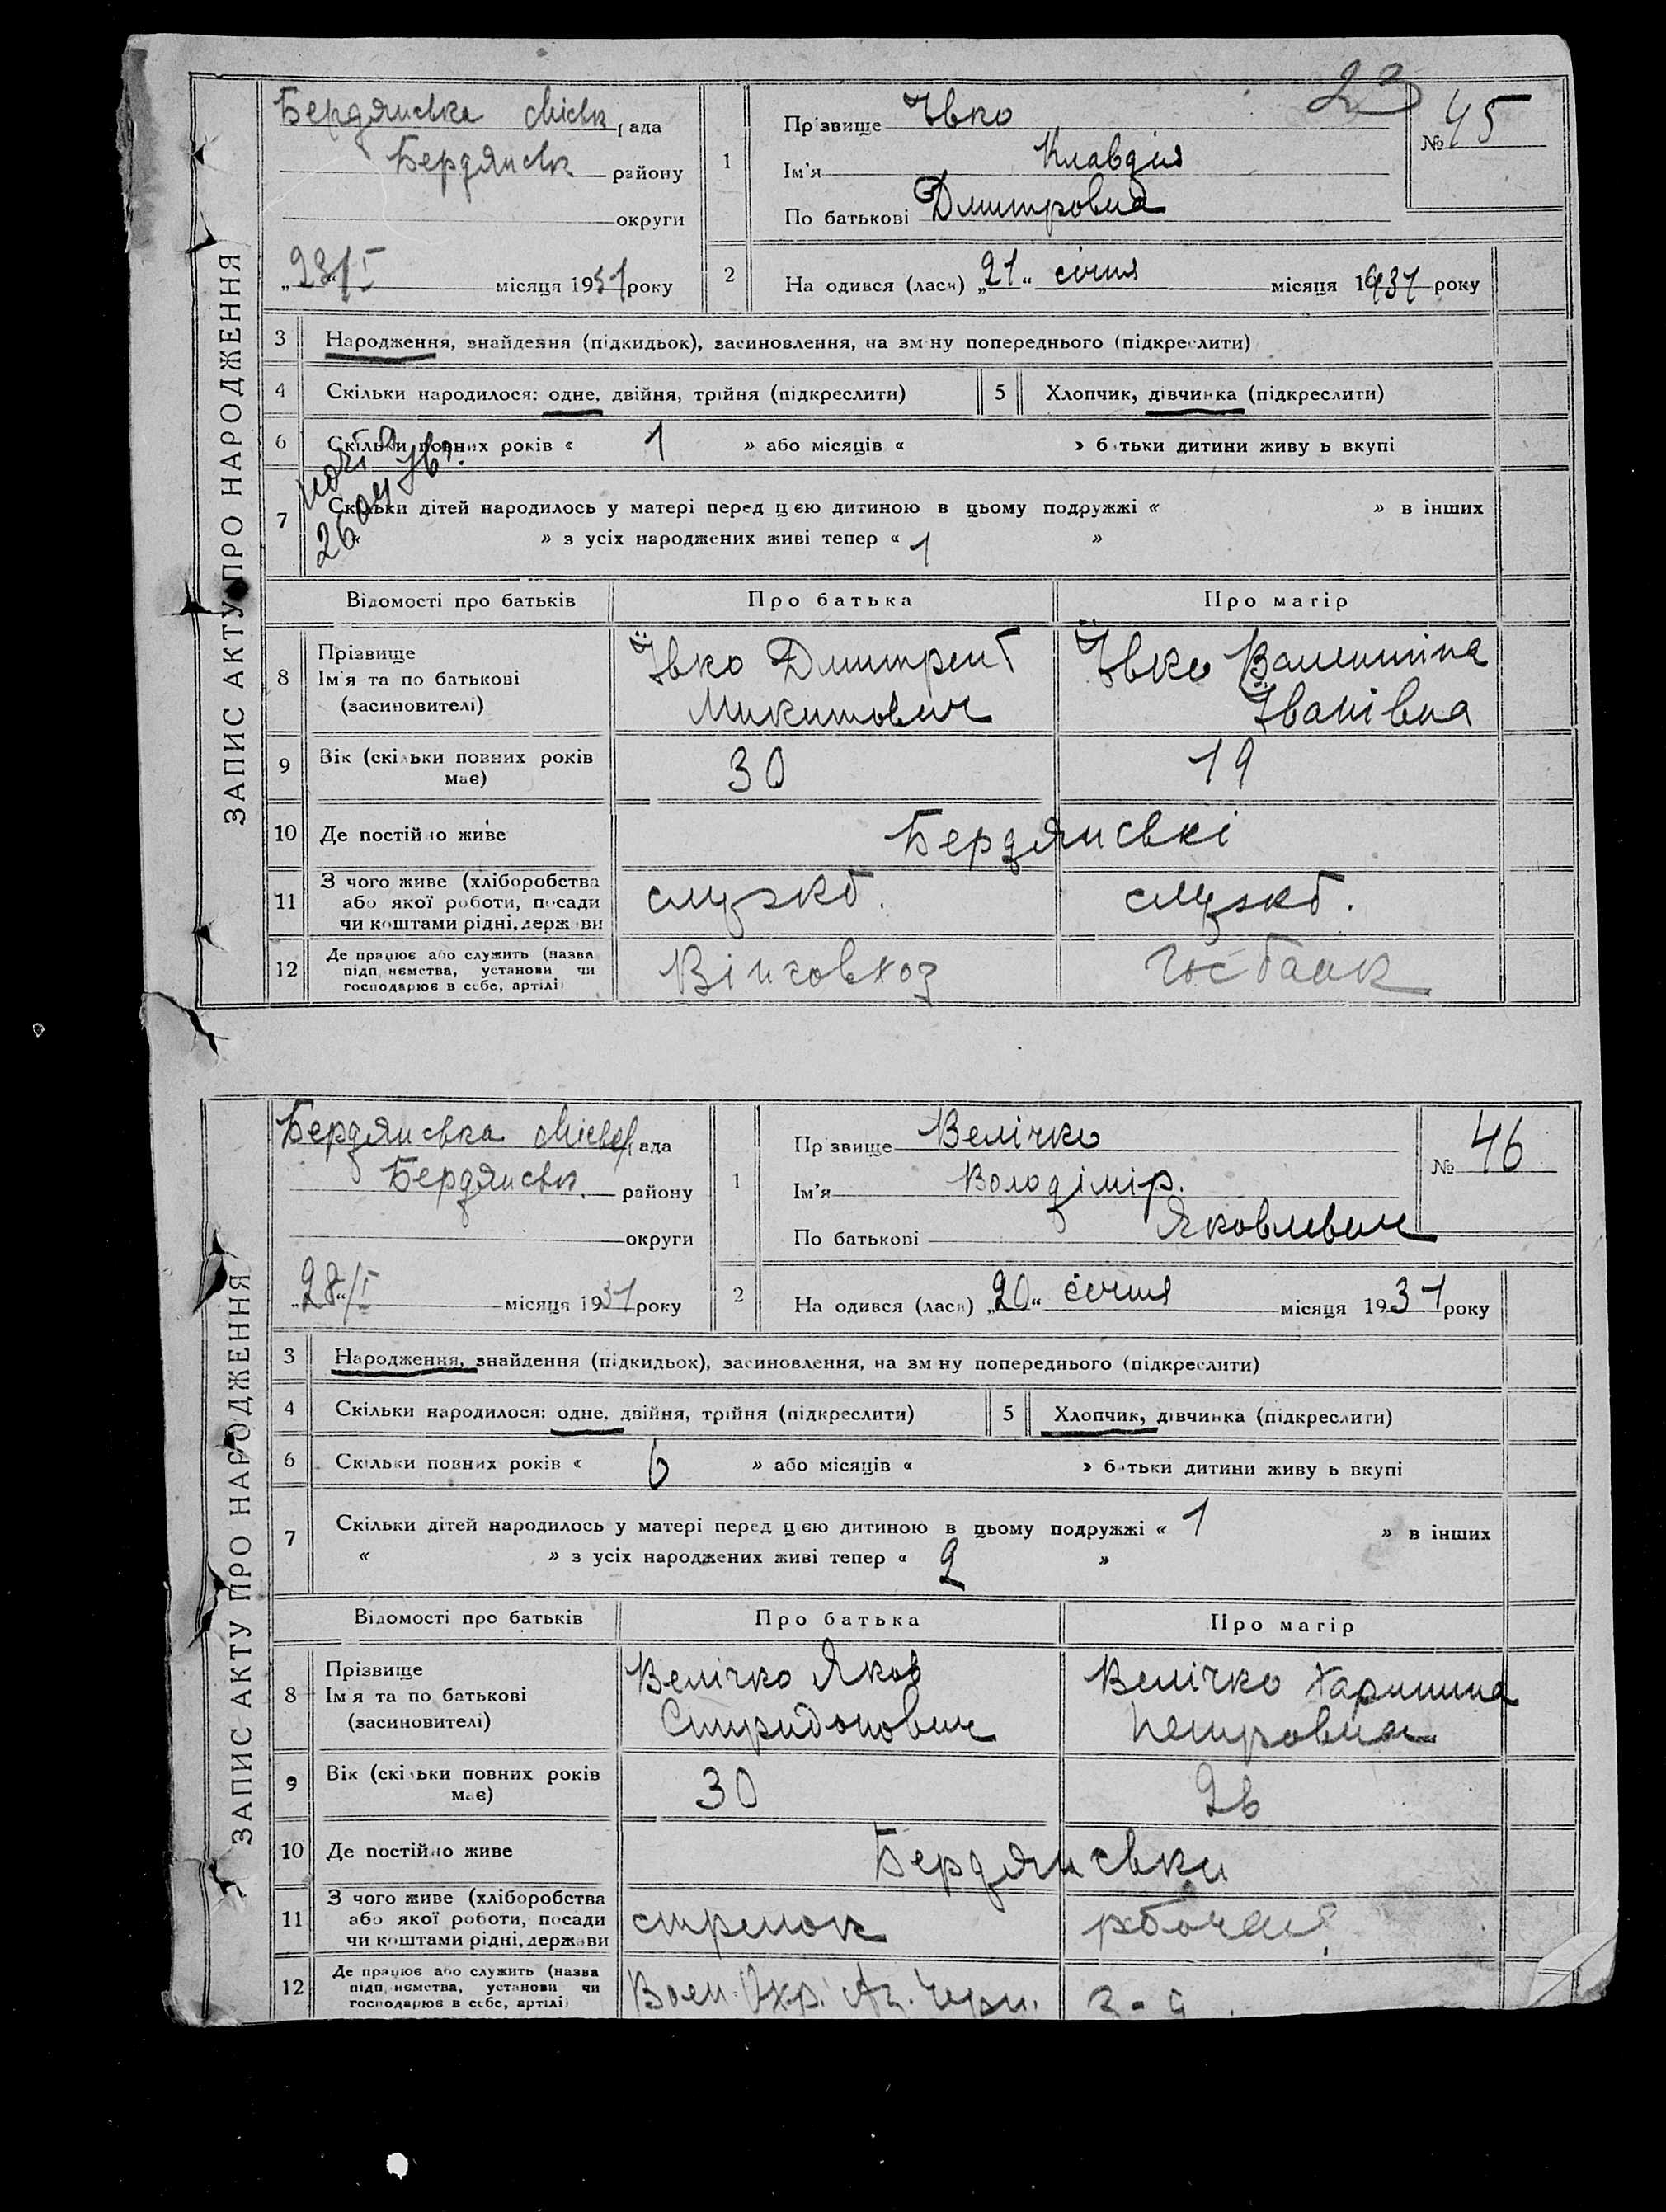 23
ЗАПИС АКТУ ПРО НАРОДЖЕННЯ
Бердянська міськ рада
Бердянськ району
округи
„28“/I місяця 1931 року
1
Прізвище Ївко
Ім'я Клавдія
По батькові Дмитровна
№ 45
2
На одився (лася) „21“ січня місяця 1931 року
3 Народження, знайдення (підкидьок), засиновлення, на зміну попереднього (підкреслити)
4 Скільки народилося: одне, двійня, трійня (підкреслити) 5 Хлопчик, дівчинка (підкреслити)
6 Скільки повних років « 1 » або місяців « » батьки дитини живуть вкупі
7 Скільки дітей народилось у матері перед цією дитиною в цьому подружжі « » в інших
» з усіх народжених живі тепер « 1 »
Відомості про батьків Про батька Про матір
8 Прізвище
Ім'я та по батькові
(засиновителі)
Ївко Дмитрий
Микитович
Ївко Валентина
Іванівна
9 Вік (скільки повних років має) 30 19
10 Де постійно живе Бердянські
11 З чого живе (хліборобства
або якої роботи, посади
чи коштами рідні, держави
служб. служб.
12 Де працює або служить (назва
підприємства, установи чи
господарює в себе, артілі)
Держбанк
ЗАПИС АКТУ ПРО НАРОДЖЕННЯ
Бердянська міськ рада
Бердянськ району
округи
„28“/I місяця 1931 року
1
Прізвище Велічко
Ім'я Володімір.
По батькові Яковлевич
№ 46
2
На одився (лася) „20“ січня місяця 1931 року
3 Народження, знайдення (підкидьок), засиновлення, на зміну попереднього (підкреслити)
4 Скільки народилося: одне, двійня, трійня (підкреслити) 5 Хлопчик, дівчинка (підкреслити)
6 Скільки повних років « 6 » або місяців « » батьки дитини живуть вкупі
7 Скільки дітей народилось у матері перед цією дитиною в цьому подружжі « 1 » в інших
« » з усіх народжених живі тепер « 2 »
Відомості про батьків Про батька Про матір
8 Прізвище
Ім'я та по батькові
(засиновителі)
Велічко Яков
Спиридонович
Велічко Харитина
Петровна
9 Вік (скільки повних років має) 30 26
10 Де постійно живе Бердянськи
11 З чого живе (хліборобства
або якої роботи, посади
чи коштами рідні, держави
стрелок
12 Де працює або служить (назва
підприємства, установи чи
господарює в себе, артілі)
Воен. Охр. Аз. Черн.